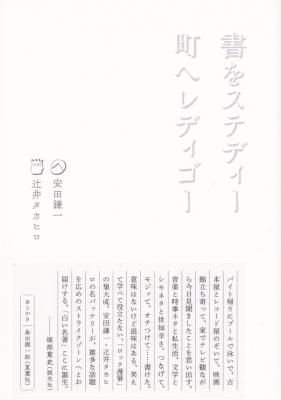 書をステディー
町へレディゴー
安田謙一
辻井タカヒロ
バイト帰りにプールで泳いで、古
本屋とレコード屋のぞいて、映画
館立ち寄って、家でテレビ観なが
ら今日見聞きしたことを思い出す。
音楽と時事ネタと私生活、文学と
シモネタと世知辛さ、つなげて、
モジッて、オチつけて……書けた。
意味はないけど滋味はある、笑え
て学べて役立たない、「ロック漫筆」
の集大成。安田謙一・辻井タカヒ
ロの名バッテリーが、雑多な話題
を広めのストライクゾーンへとお
届けする、「白い名著」ここに誕生。
——堀部篤史(誠光社)
あとがき 島田潤一郎(夏葉社)